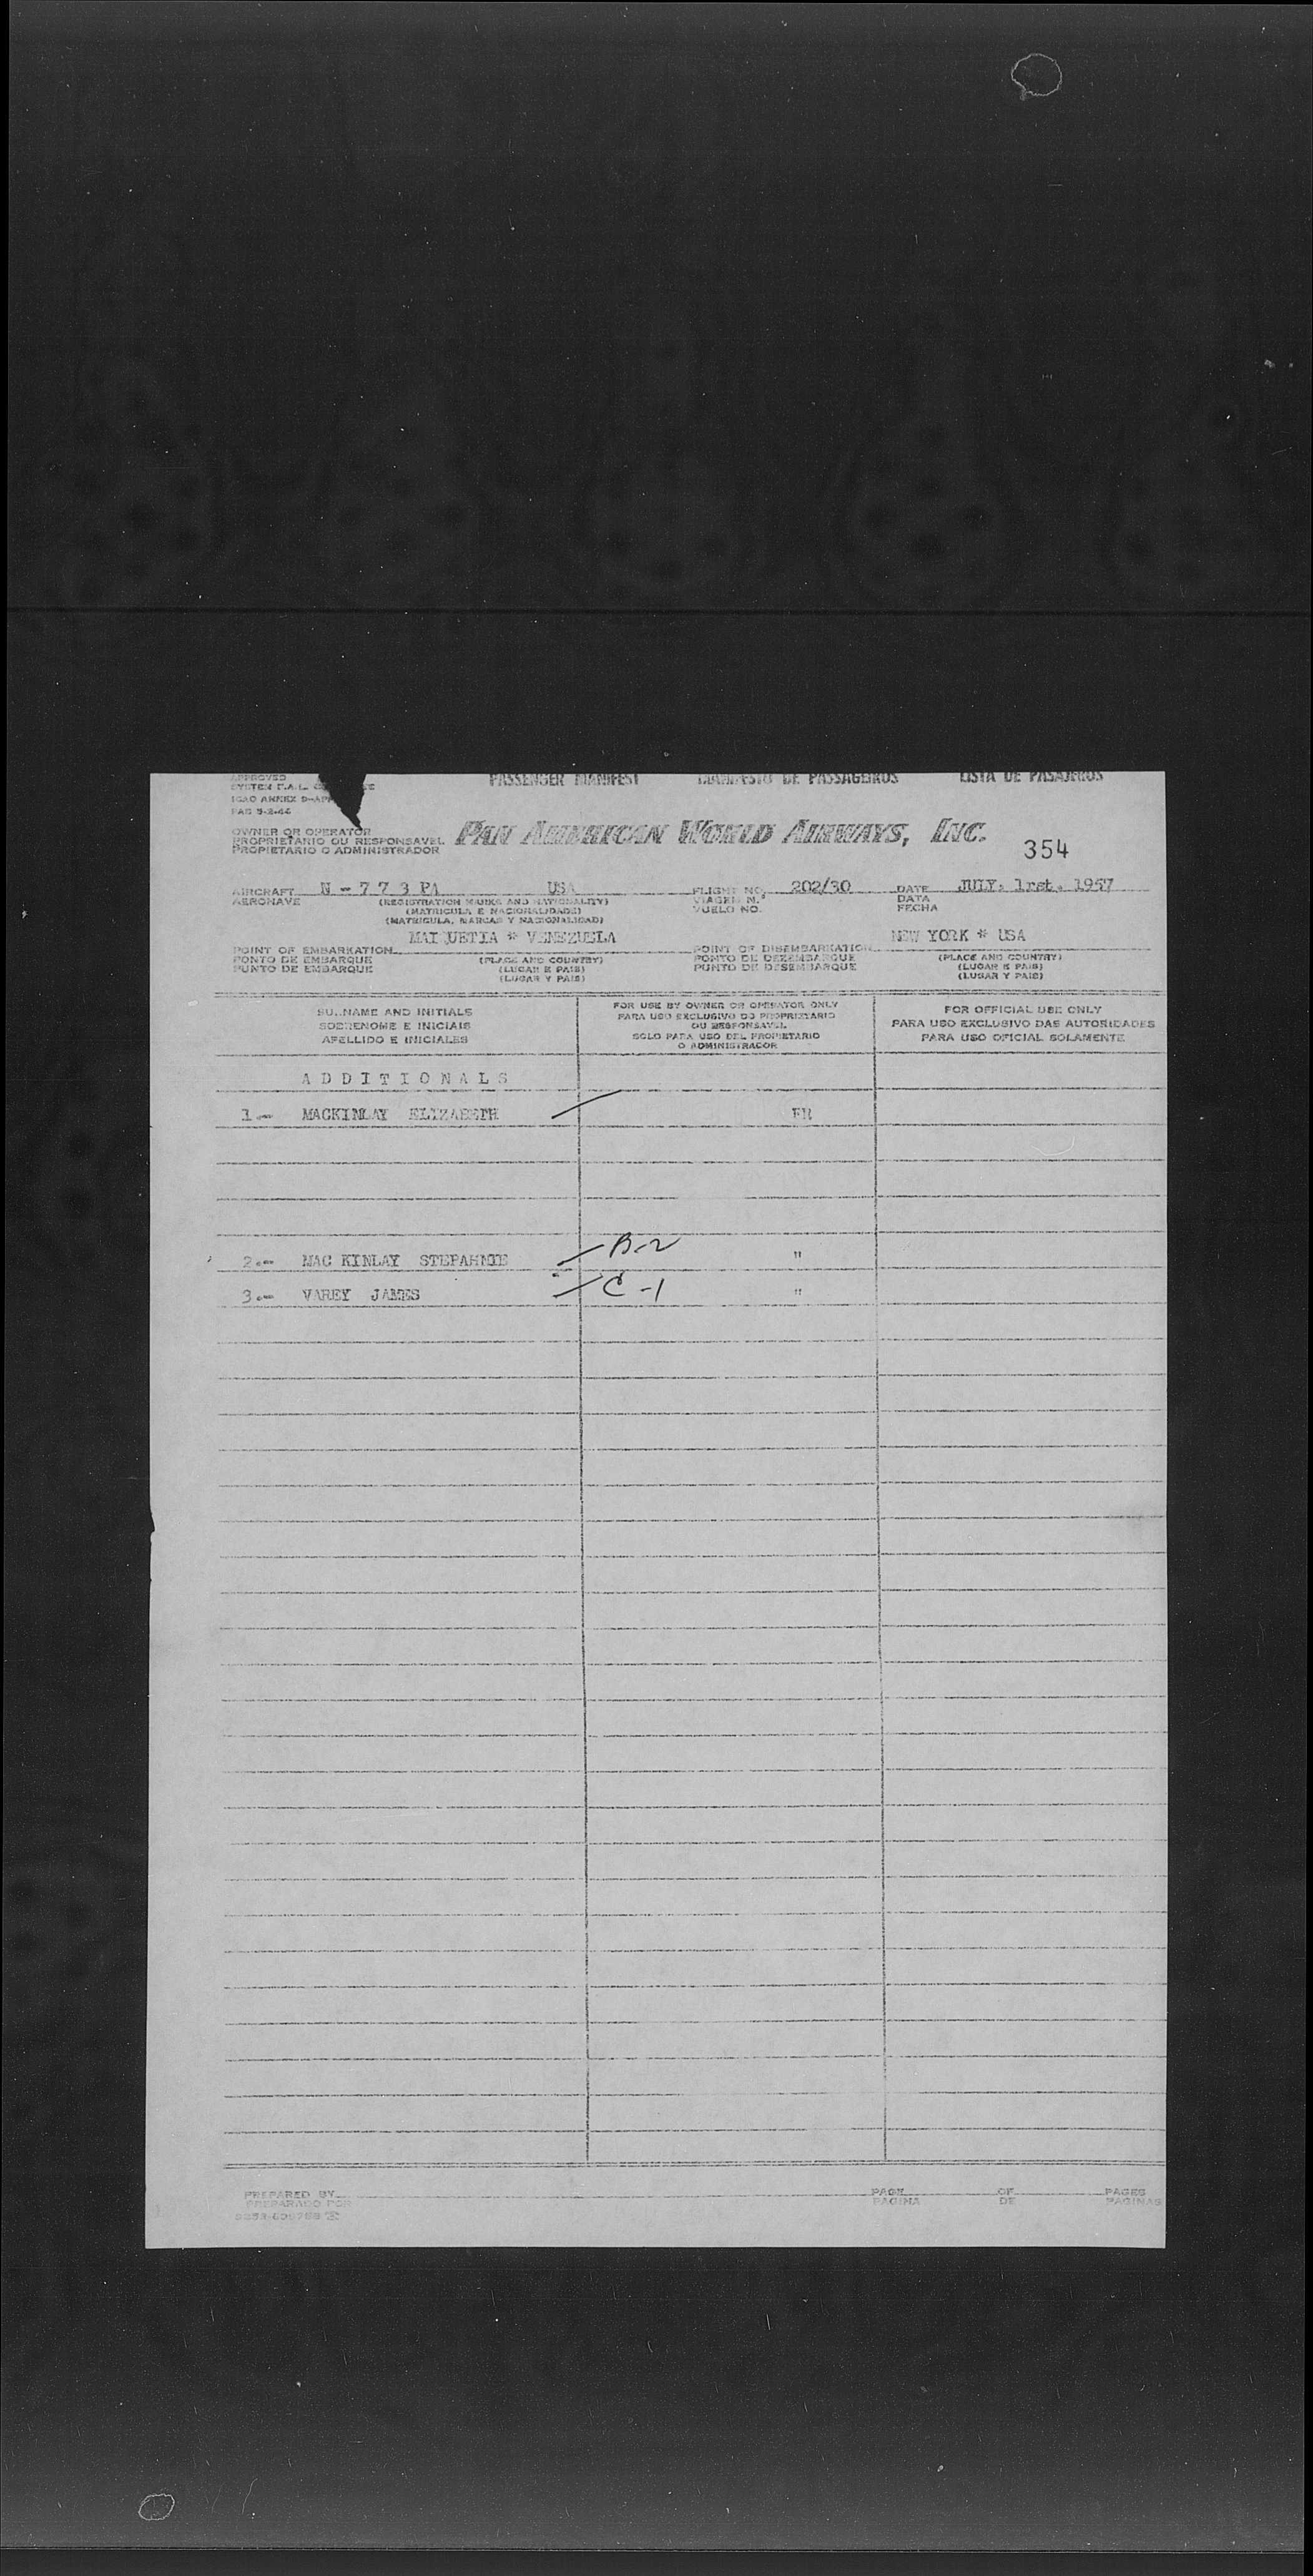 APPROVED PASSENGER MANIFEST MANIFESTO DE PASSAGEIROS LISTA DE PASAJEROS
SYSTEM F.A.L.
ICAO ANNEX 9-APP
PAG 9-2-44
OWNER OR OPERATOR
PROPRIETARIO OU RESPONSAVEL PAN AMERICAN WORLD AIRWAYS, INC.
PROPIETARIO O ADMINISTRADOR 354
AIRCRAFT N - 7 7 3 PA USA FLIGHT NO. 202/30 DATE JULY, 1rst. 1957
AERONAVE (REGISTRATION MARKS AND NATIONALITY) VIAGEM N.º DATA
(MATRICULA E NACIONALIDADE) VUELO NO. FECHA
(MATRICULA, MARCAS Y NACIONALIDAD)
MAIQUETIA * VENEZUELA NEW YORK * USA
POINT OF EMBARKATION POINT OF DISEMBARKATION
PONTO DE EMBARQUE (PLACE AND COUNTRY) PONTO DE DEZEMBARQUE (PLACE AND COUNTRY)
PUNTO DE EMBARQUE (LUGAR E PAIS) PUNTO DE DESEMBARQUE (LUGAR E PAIS)
(LUGAR Y PAIS) (LUGAR Y PAIS)
SURNAME AND INITIALS
SOBRENOME E INICIAIS
APELLIDO E INICIALES
FOR USE BY OWNER OR OPERATOR ONLY
PARA USO EXCLUSIVO DO PROPRIETARIO
OU RESPONSAVEL
SOLO PARA USO DEL PROPIETARIO
O ADMINISTRADOR
FOR OFFICIAL USE ONLY
PARA USO EXCLUSIVO DAS AUTORIDADES
PARA USO OFICIAL SOLAMENTE
A D D I T I O N A L S
1.- MACKINLAY ELIZABETH FR
2.- MAC KINLAY STEPAHNIE B-2 "
3.- VAREY JAMES C-1 "
PREPARED BY PAGE OF PAGES
PREPARADO POR PAGINA DE PAGINAS